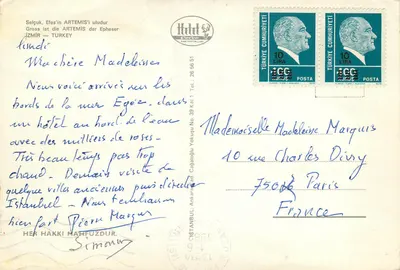 Selçuk, Efes'in ARTEMİS'i olsdur
Gross ist die ARTEMIS der Epheser
İZMİR — TURKEY
Lundi
Ma chère Madeleine
Nous voici arrivés sur les
bords de la mer Egée, dans
un hôtel au bord de l'eau
avec des milliers de roses.
Très beau temps pas trop
chaud. Demain visite de
quelque villes anciennes puis direction
Istanbul. Nous t'embrassons
bien fort Pierre Marquis
Simone
HER HAKKI MAHFUZDUR.
TÜRKİYE CUMHURİYETİ
10
LİRA
POSTA
TÜRKİYE CUMHURİYETİ
10
LİRA
POSTA
Mademoiselle Madeleine Marquis
10 rue Charles Divry
75014 Paris
France